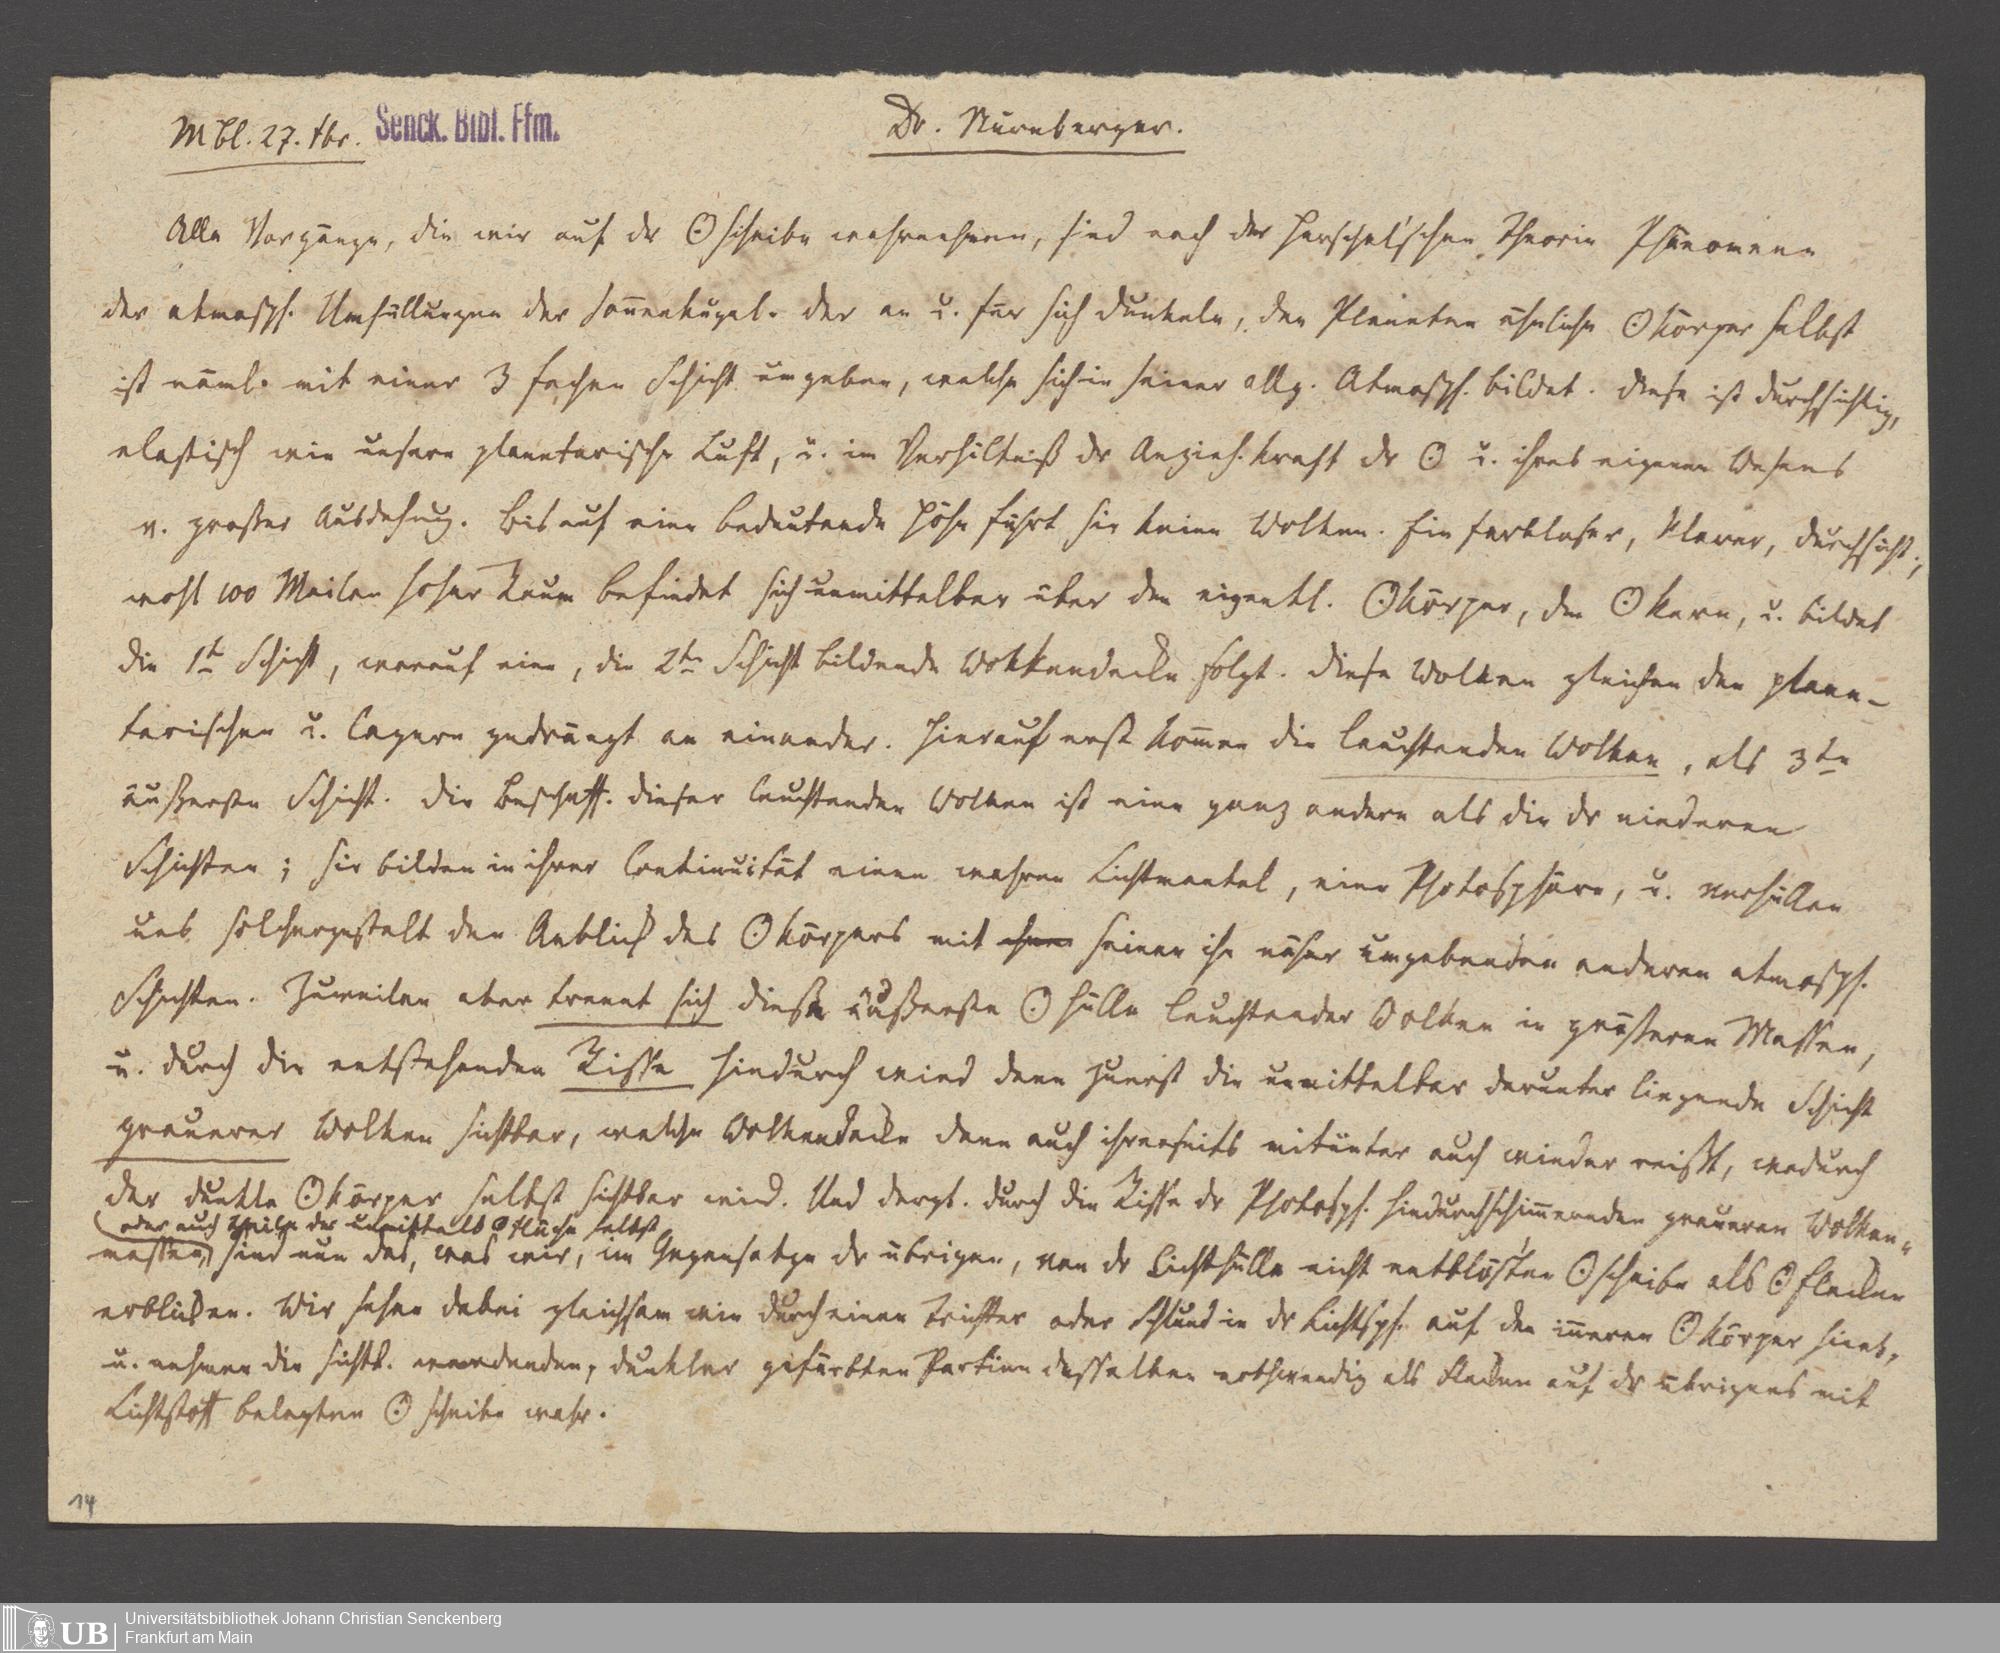 MBl. 27. Senck. Bibl. Ffm. Dr. Nürnberger.
Alle Vorgänge, die wir auf dr ☉ scheibe wahrnehmen, sind nach der Herschel'schen Theorie Phänomene
der atmosph. Umhüllungen der Sonnenkugel. Der an u. für sich dunkele, den Planeten ähnliche ☉ körper selbst
ist näml. mit einer 3 fachen Schicht umgeben, welche sich in seiner allg. Atmosph. bildet. Diese ist durchsichtig,
elastisch wie unsere planetarische Luft, u. im Verhältniß dr Anzieh. kraft dr ☉ u. ihres eigenen Wesens
v. großer Ausdehnung. Bis auf eine bedeutende Höhe führt sie keine Wolken. Ein farbloser, klarer, durchsicht.,
wohl 100 Meilen hoher Raum befindet sich unmittelbar über dem eigentl. ☉körper, dem ☉ kern, u. bildet
die 1te Schicht, worauf eine, die 2te Schicht bildende Wolkendecke folgt. Diese Wolken gleichen den plane-
tarischen u. lagern gedrängt an einander. Hierauf erst kom̄en die leuchtenden Wolken, als 3te
äußerste Schicht. Die Beschaff. dieser leuchtenden Wolken ist eine ganz andere als die dr niederen
Schichten; sie bilden in ihrer Continuität einen wahren Lichtmantel, eine Photosphäre, u. verhüllen
uns solchergestalt den Anblick des ☉ körpers mit seinen ihn näher umgebenden anderen atmosph.
Schichten. Zuweilen aber trennt sich diese äußerste ☉ hülle leuchtender Wolken in größeren Massen,
u. durch die entstehenden Risse hindurch wird dann zuerst die unmittelbar darunter liegende Schicht
grauerer Wolken sichtbar, welche Wolkendecke dann auch ihrerseits mitunter auch wieder reißt, wodurch
der dunkle ☉ körper selbst sichtbar wird. Und dergl. durch die Risse dr Photosph. hindurchschim̄ernden graueren Wolken-
oder auch Theile der ☉ fläche selbst
massen, sind nun das, was wir, im Gegensatze dr übrigen, von dr Lichthülle nicht entblösten ☉ scheibe als ☉ flecken
erblicken. Wir sehen dabei gleichsam wie durch einen Trichter oder Schlund in dr Lichtsph. auf den in̄eren ☉ körper hinab,
u. nehmen die sichtb. werdenden, dunkler gefärbten Partien desselben nothwendig als Flecken auf dr übrigens mit
Lichtstoff belegten ☉ scheibe wahr.
14
UB Universitätsbibliothek Johann Christian Senckenberg
Frankfurt am Main